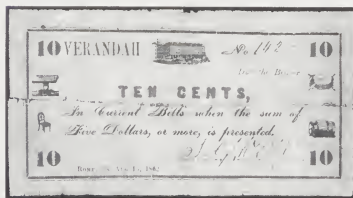 10 VERANDAH No. 142 10
TEN CENTS,
In Current Bills when the sum of
Five Dollars, or more, is presented.
10 10